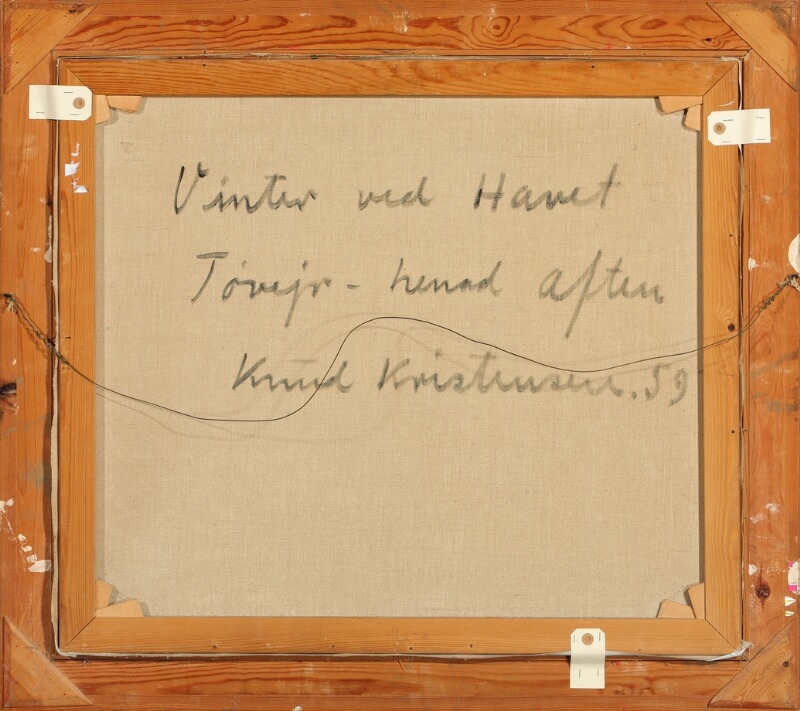 Vinter ved Havet
Tøvejr - henad aften
Knud Kristensen. 59